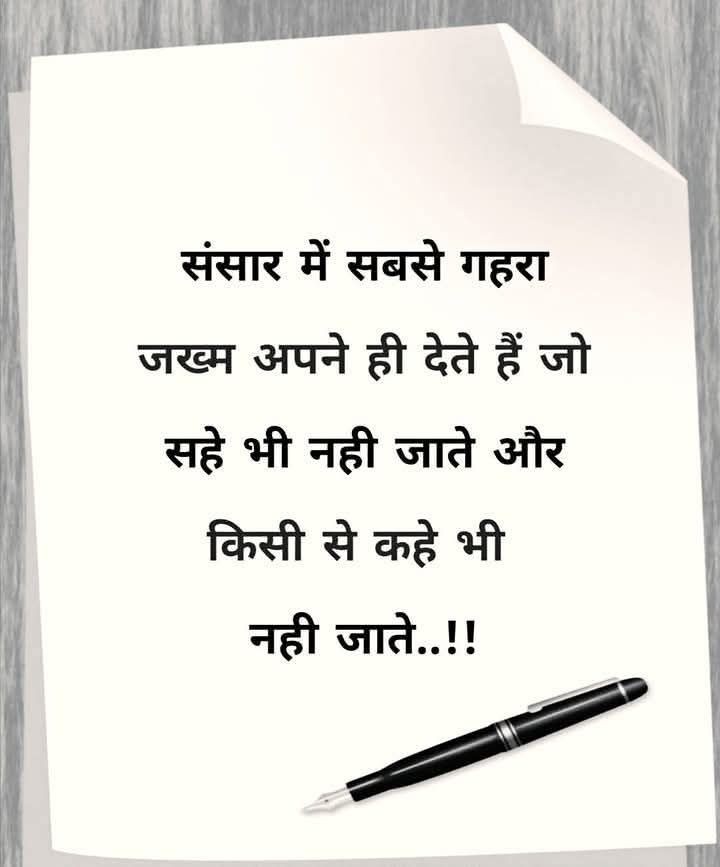 संसार में सबसे गहरा
जख्म अपने ही देते हैं जो
सहे भी नही जाते और
किसी से कहे भी
नही जाते..!!